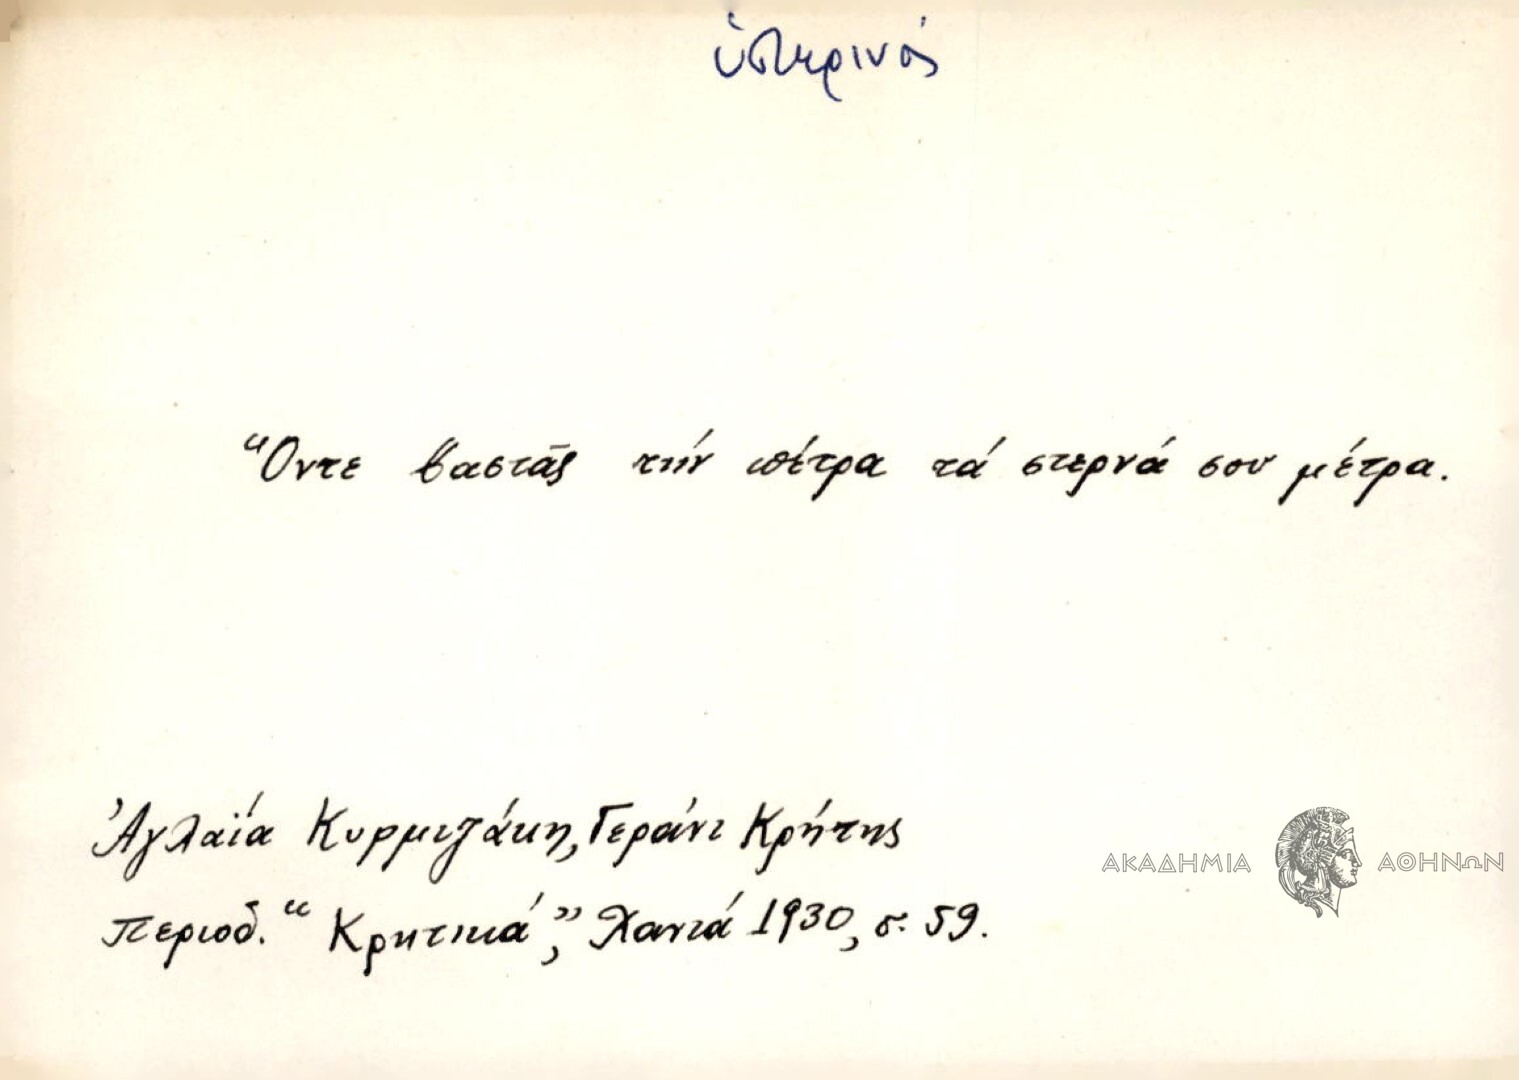 ὑστερινός
Ὅντε βαστᾶς τήν πέτρα τά στερνά σου μέτρα.
Ἀγλαΐα Κυρμιζάκη, Γεράνι Κρήτης
ΑΚΑΔΗΜΙΑ ΑΘΗΝΩΝ
περιοδ. "Κρητικά," Χανιά 1930, σ. 59.